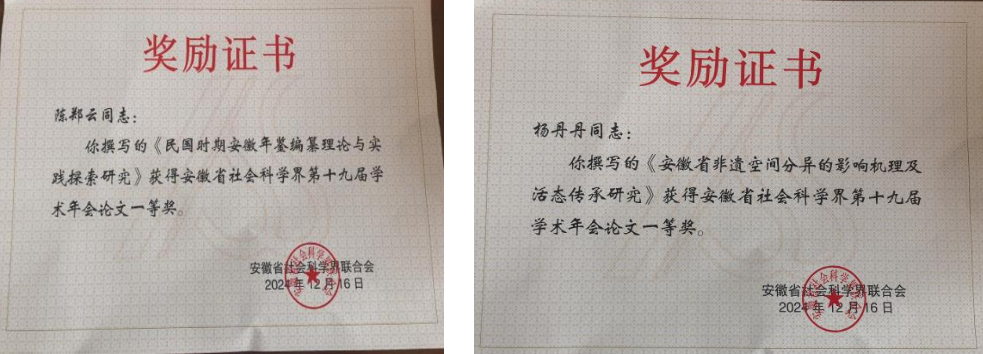 奖励证书
陈郑云同志：
你撰写的《民国时期安徽年鉴编纂理论与实
践探索研究》获得安徽省社会科学界第十九届学
术年会论文一等奖。
安徽省社会科学界联合会
2024年12月16日
奖励证书
杨丹丹同志：
你撰写的《安徽省非遗空间分异的影响机理及
活态传承研究》获得安徽省社会科学界第十九届
学术年会论文一等奖。
安徽省社会科学界联合会
2024年12月16日